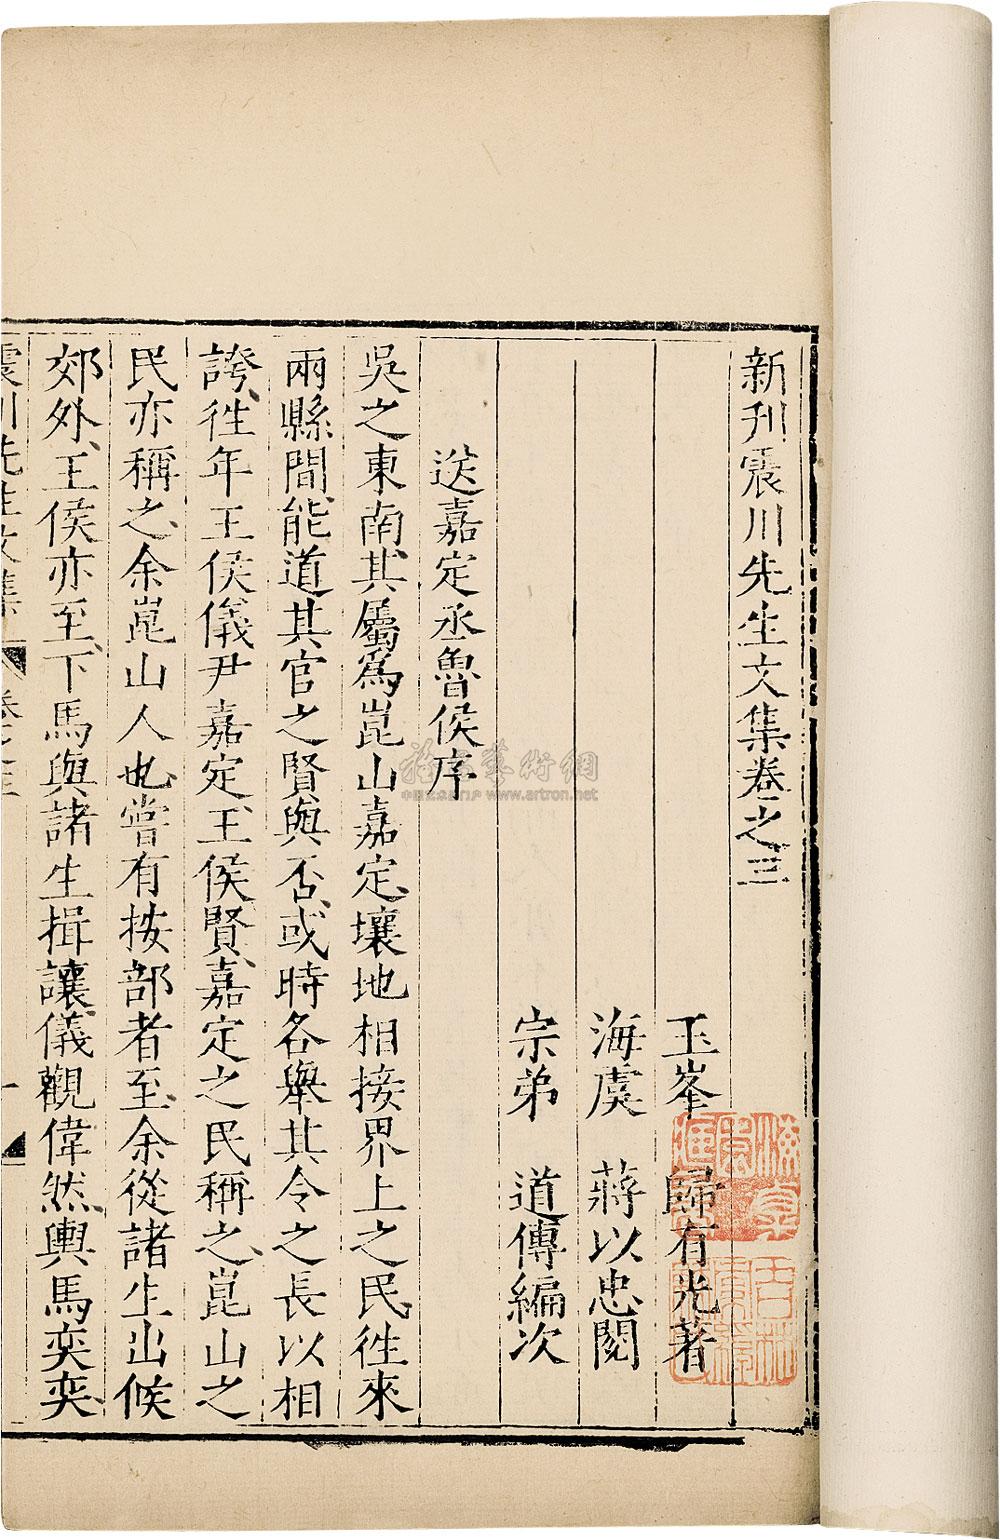 新刊震川先生文集卷之三
玉峯 歸有光著
海虞 蔣以忠閱
宗弟 道傳編次
送嘉定丞魯侯序
吳之東南、其屬爲崑山嘉定、壤地相接界上之民徃來
兩縣間、能道其官之賢與否、或時各舉其令之長以相
誇、徃年王侯儀尹嘉定、王侯賢、嘉定之民稱之、崑山之
民亦稱之、余崑山人也、嘗有按部者至、余從諸生出候
郊外、王侯亦至、下馬與諸生揖讓、儀觀偉然、輿馬奕奕
震川先生文集 卷之三 一
雅昌藝術網
www.artron.net